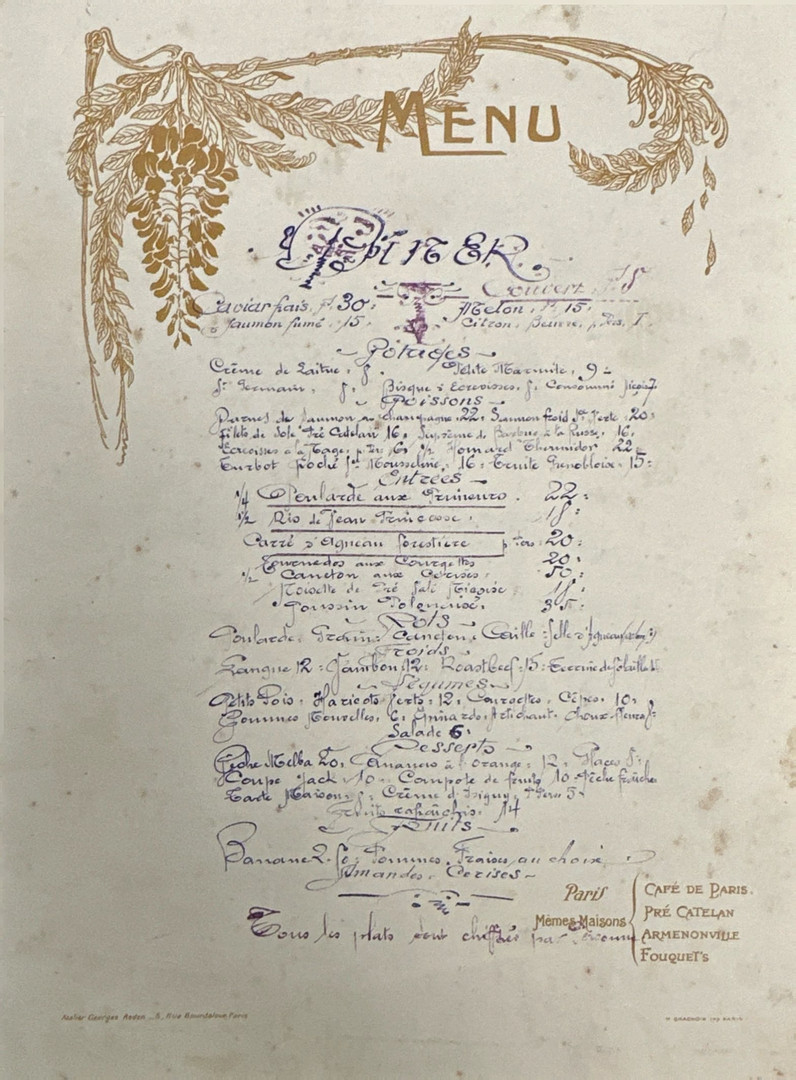 MENU
DINER
Couvert
Caviar frais, 30
Melon, 15
Saumon fumé 15
Citron, Beurre, p. Pers, 1
Potages
Crème de Laitue,
Petite Marmite, 9
St Germain, Bisque d'Ecrevisses, Consommé
Poissons
Darnes de Saumon au champagne 22, Saumon froid Sce Verte 20
Filets de Sole Pré Catelan 16, Suprême de Barbue à la Russe, 16
Ecrevisses à la Nage, p. Pers 16, 1/2 Homard Thermidor 22
Turbot Poché Sce Mousseline, 16, Truite Grenobloise, 15
Entrées
1/4 Poularde aux Primeurs. 22
1/2 Ris de Veau Princesse,
Carré d'Agneau forestière p Pers 20
Tournedos aux Courgettes 20
1/2 Caneton aux Cerises,
Noisette de Pré Salé Niçoise
Poussin Polonaise,
Rôts
Poularde, Caneton, Caille, Selle d'Agneau
Froids
Langue 12, Jambon 12, Roastbeef, 15, Terrine de
Légumes
Petits Pois, Haricots Verts, 12, Courgettes, Cèpes, 10
Pommes Nouvelles, 6, Epinards, Artichaut, Choux-fleurs
Salade 6
Desserts
Pêche Melba 20, Ananas à l'Orange, 12, Glaces
Coupe Jack 10, Compote de fruits 10 Pêche fraîche
Tarte Maison, Crème d'Isigny, p Pers 5
Fruits rafraîchis, 14
Fruits
Banane 2.50, Pommes, Fraises au choix
Amandes, Cerises
Tous les plats sont chiffrés par personne
Paris
Mêmes Maisons
CAFÉ DE PARIS.
PRÉ CATELAN
ARMENONVILLE
FOUQUET'S
Atelier Georges Redon _ 8, Rue Bourdaloue, Paris